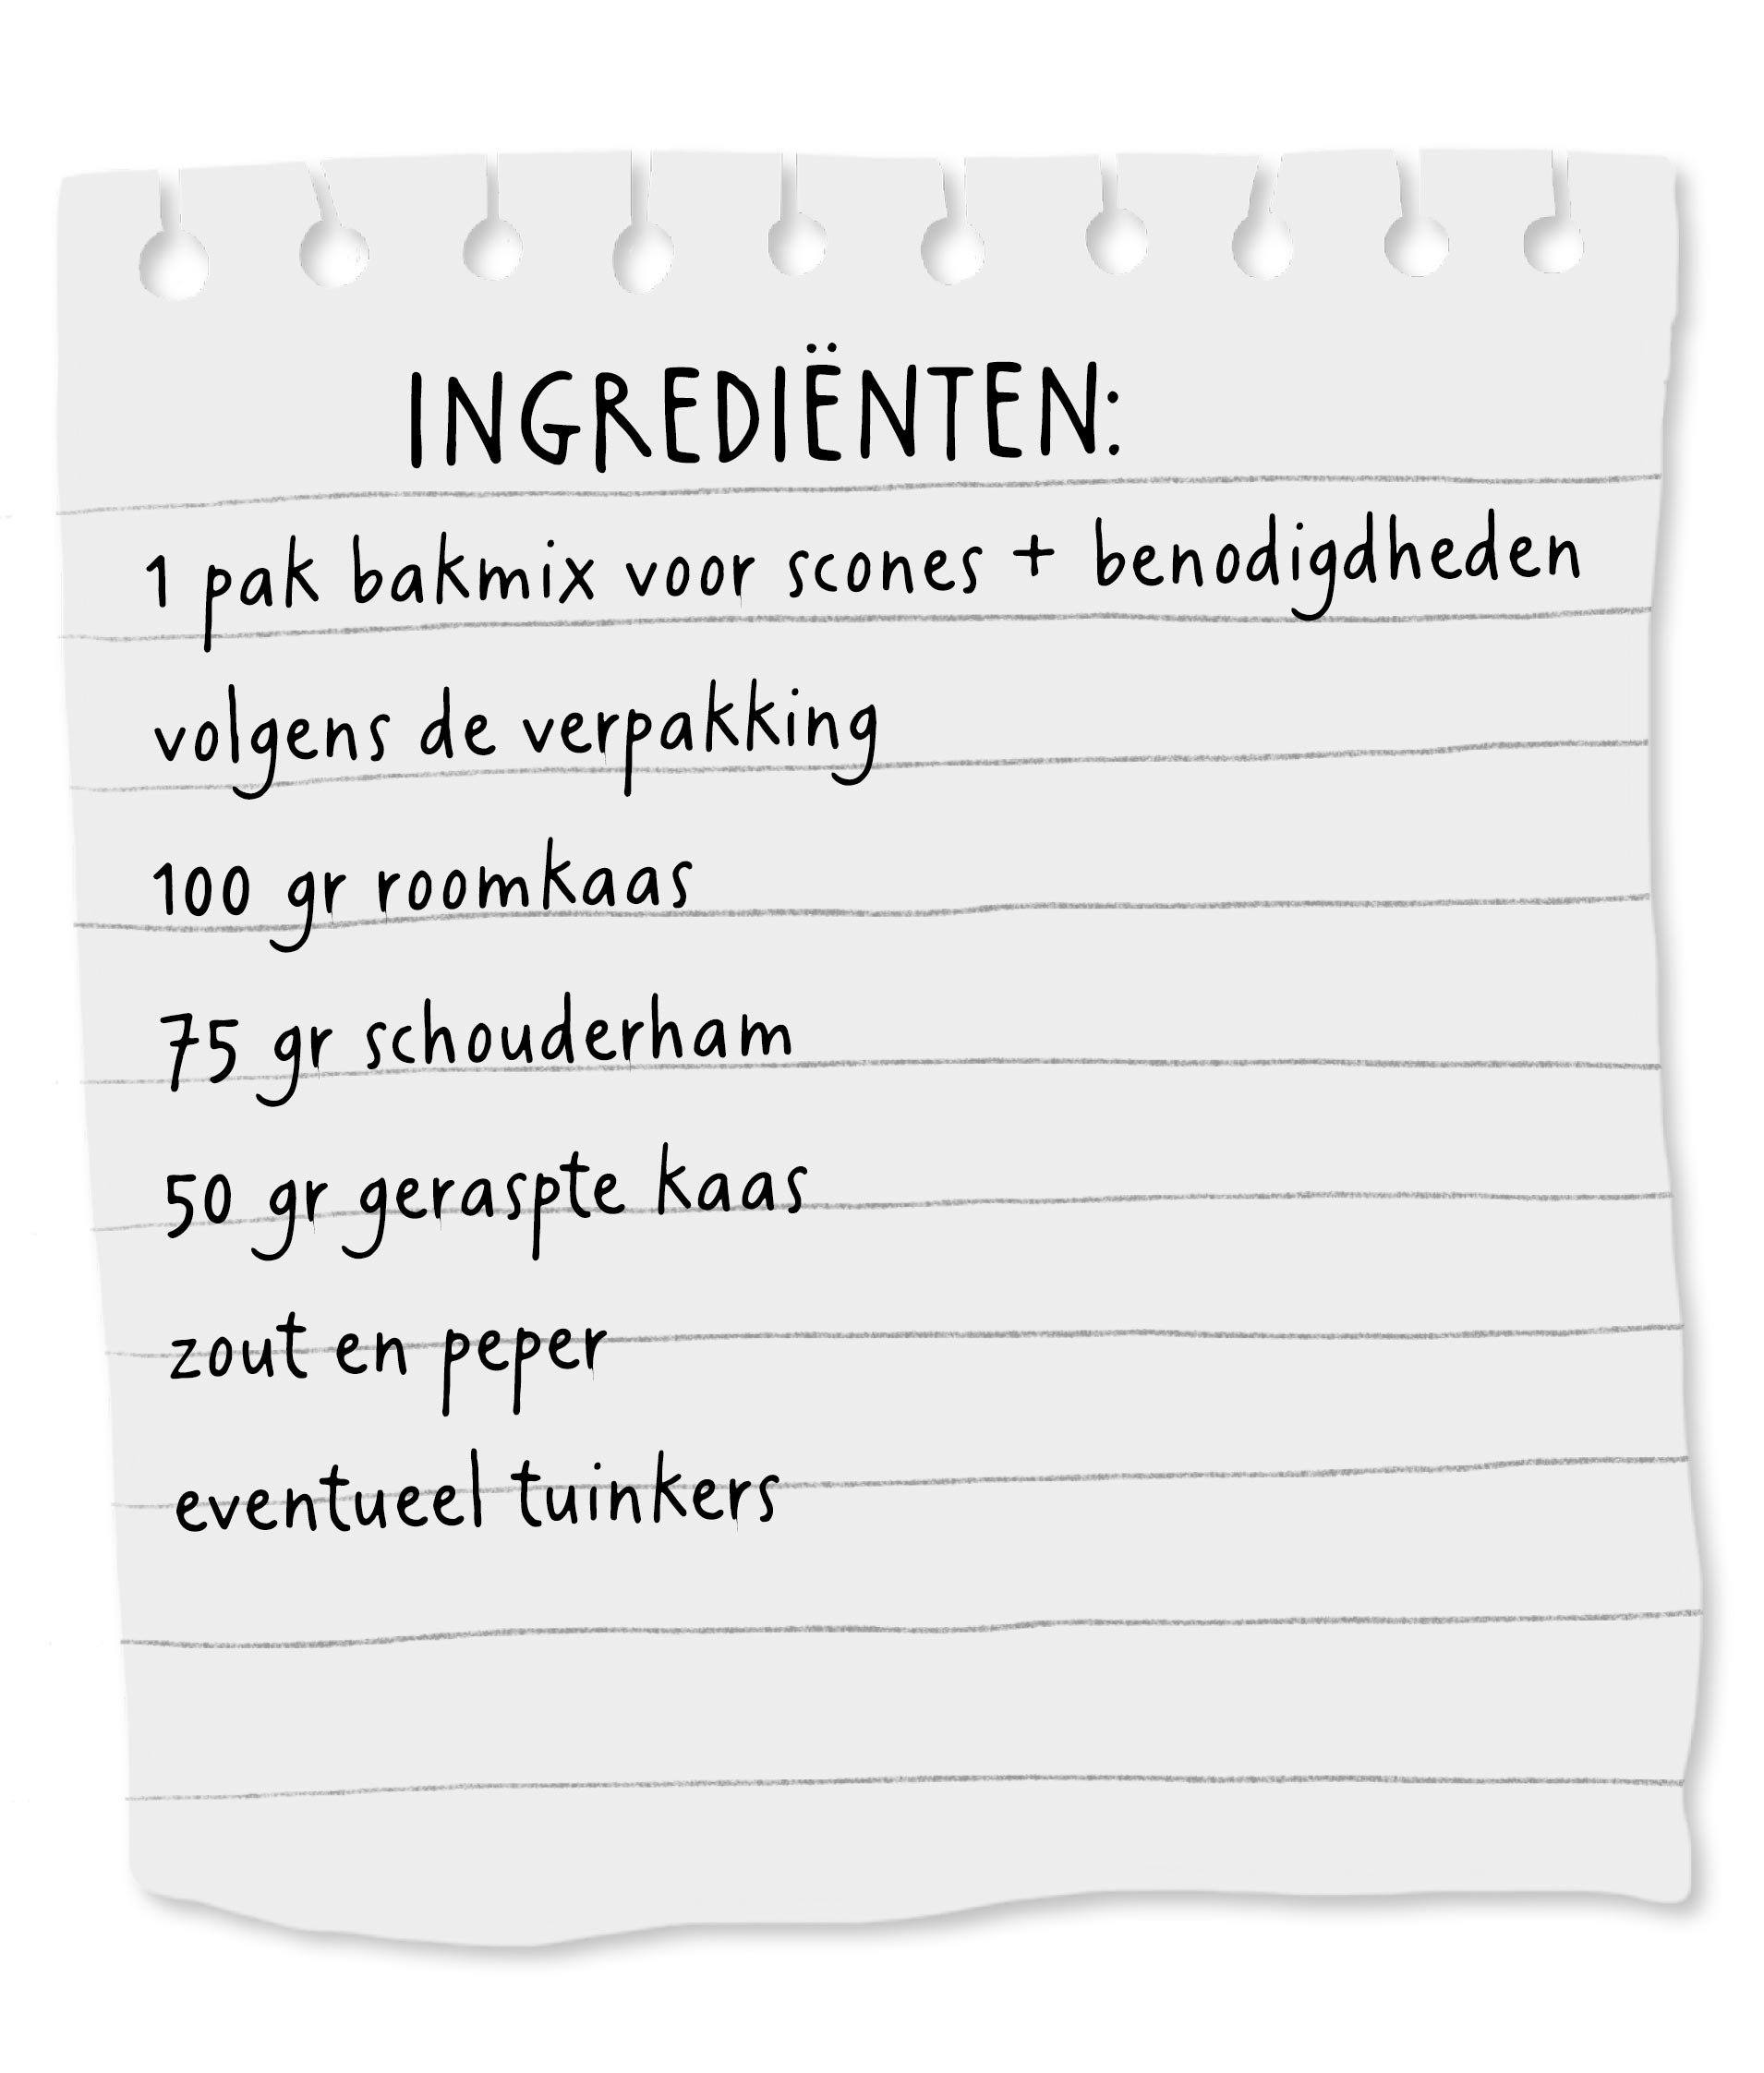 INGREDIËNTEN:
1 pak bakmix voor scones + benodigdheden
volgens de verpakking
100 gr roomkaas
75 gr schouderham
50 gr geraspte kaas
zout en peper
eventueel tuinkers